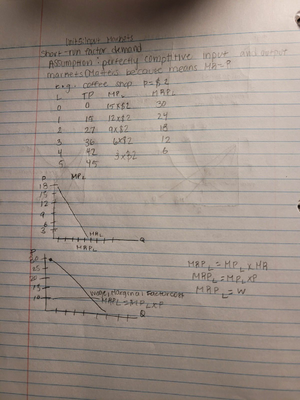 Short-run factor demand
Assumption: perfectly competitive input and output
markets (Matters because means MR=P
e.g.: coffee shop P=$2
L TP MPL MRPL
0 0 15x$2 30
1 15 12x$2 24
2 27 9x$2 18
3 36 6x$2 12
4 42 3x$2 6
5 45
P MPL
18
15
12
9
6
MRL Q
MRPL
P
30
25
20
15
10
wage/marginal factor cost
MRPL=MPLxP
Q
MRPL=MPLxMR
MRPL=MPLxP
MRPL=W